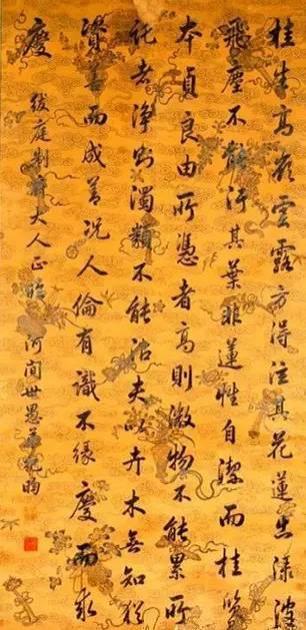 桂生高嶺雲露方得泫其花蓮出渌波
飛塵不能污其葉非蓮性自潔而桂質
本貞良由所憑者高則微物不能累所
託者淨則濁類不能沾夫以卉木無知猶
資善而成善況人倫有識不緣慶而求
慶
紱庭制府大人正臨 河間世愚弟紀昀